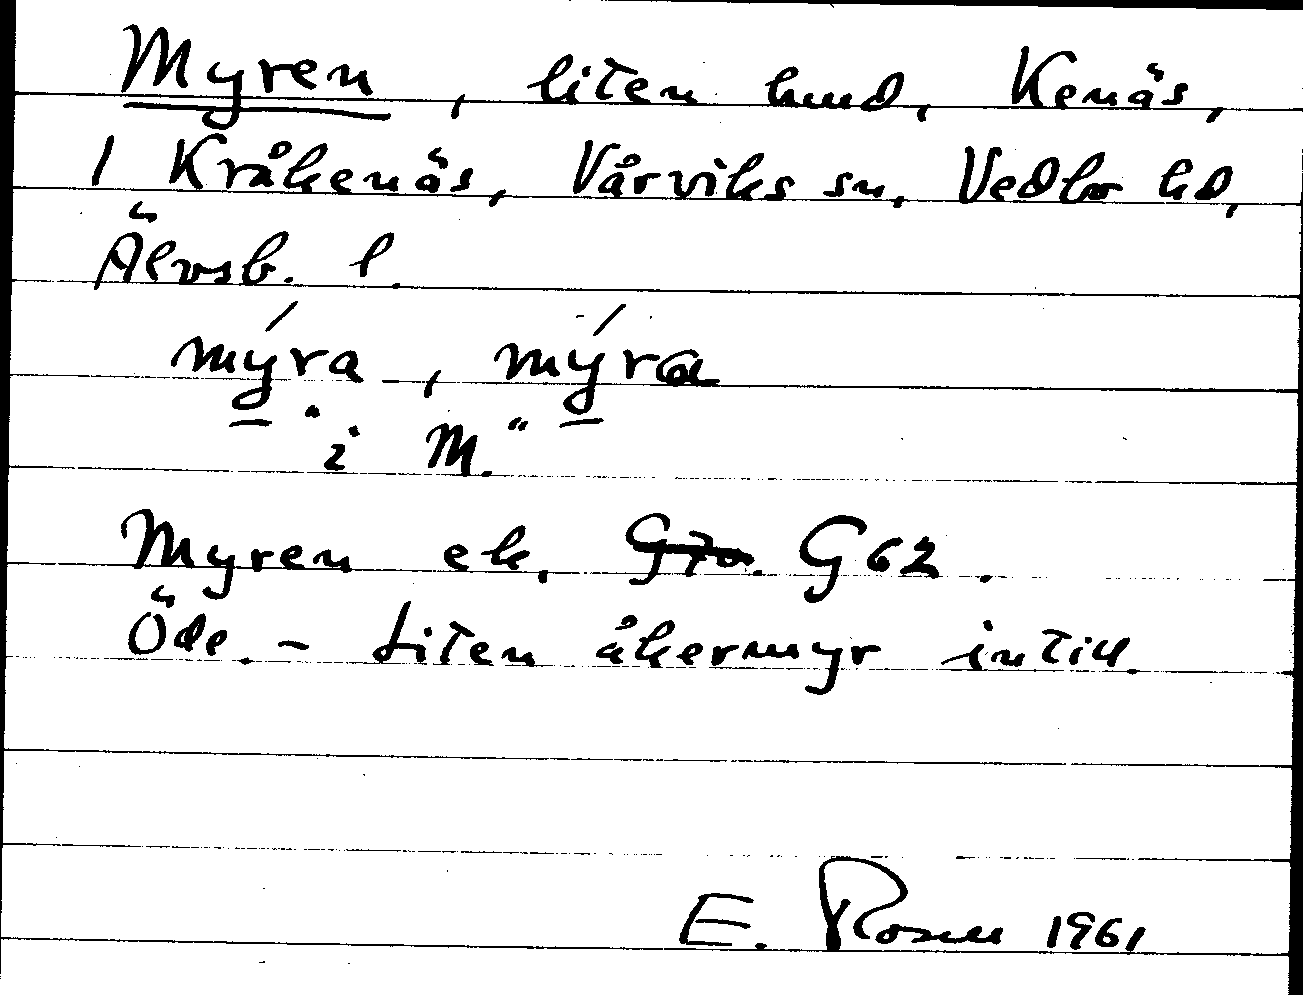 Myren, liten lmd, Kenäs,
1 Kråkenäs, Vårviks sn, Vedbo hd,
Älvsb. l.
mýra, mýrα
"i M."
Myren ek. G70. G62.
Öde. - Liten åkermyr intill.
E. Rosell 1961